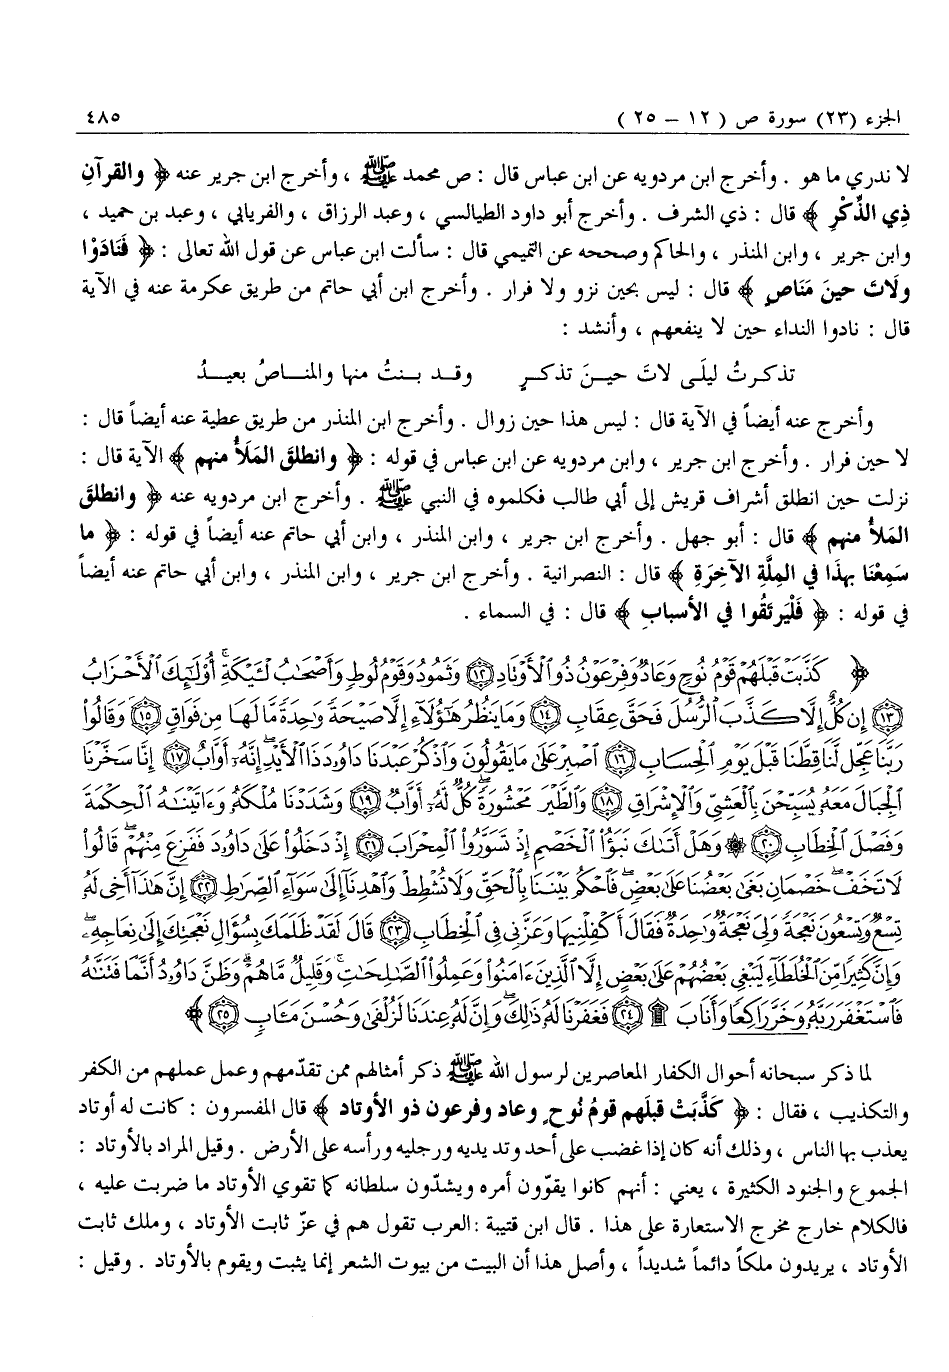 الجزء (٢٣) سورة ص ( ١٢ – ٢٥ ) ٤٨٥
لا ندري ما هو . وأخرج ابن مردويه عن ابن عباس قال : ص محمد ﷺ ، وأخرج ابن جرير عنه ﴿ والقرآنِ
ذِي الذِّكْرِ ﴾ قال : ذي الشرف . وأخرج أبو داود الطيالسي ، وعبد الرزاق ، والفريابي ، وعبد بن حميد ،
وابن جرير ، وابن المنذر ، والحاكم وصححه عن التميمي قال : سألت ابن عباس عن قول الله تعالى : ﴿ فَنَادَوْا
ولَاتَ حينَ مَنَاصٍ ﴾ قال : ليس بحين نزو ولا فرار . وأخرج ابن أبي حاتم من طريق عكرمة عنه في الآية
قال : نادوا النداء حين لا ينفعهم ، وأنشد :
تذكرتُ ليلَى لاتَ حيـنَ تذكـرٍ وقـد بـنتُ منها والمنـاصُ بعيـدُ
وأخرج عنه أيضاً في الآية قال : ليس هذا حين زوال . وأخرج ابن المنذر من طريق عطية عنه أيضاً قال :
لا حين فرار . وأخرج ابن جرير ، وابن مردويه عن ابن عباس في قوله : ﴿ وانطلقَ المَلَأُ منهم ﴾ الآية قال :
نزلت حين انطلق أشراف قريش إلى أبي طالب فكلموه في النبي ﷺ . وأخرج ابن مردويه عنه ﴿ وانطلقَ
الملأُ منهم ﴾ قال : أبو جهل . وأخرج ابن جرير ، وابن المنذر ، وابن أبي حاتم عنه أيضاً في قوله : ﴿ ما
سَمِعْنَا بهذَا في المِلَّةِ الآخِرَةِ ﴾ قال : النصرانية . وأخرج ابن جرير ، وابن المنذر ، وابن أبي حاتم عنه أيضاً
في قوله : ﴿ فَلْيَرتَقُوا في الأسبابِ ﴾ قال : في السماء .
﴿ كَذَّبَتْ قَبْلَهُمْ قَوْمُ نُوحٍ وَعَادٌ وَفِرْعَوْنُ ذُو ٱلْأَوْتَادِ ﴿١٢﴾ وَثَمُودُ وَقَوْمُ لُوطٍ وَأَصْحَٰبُ لْـَٔيْكَةِ ۚ أُو۟لَٰٓئِكَ ٱلْأَحْزَابُ
﴿١٣﴾ إِن كُلٌّ إِلَّا كَذَّبَ ٱلرُّسُلَ فَحَقَّ عِقَابِ ﴿١٤﴾ وَمَا يَنظُرُ هَٰٓؤُلَآءِ إِلَّا صَيْحَةً وَٰحِدَةً مَّا لَهَا مِن فَوَاقٍ ﴿١٥﴾ وَقَالُوا۟
رَبَّنَا عَجِّل لَّنَا قِطَّنَا قَبْلَ يَوْمِ ٱلْحِسَابِ ﴿١٦﴾ ٱصْبِرْ عَلَىٰ مَا يَقُولُونَ وَٱذْكُرْ عَبْدَنَا دَاوُۥدَ ذَا ٱلْأَيْدِ ۖ إِنَّهُۥٓ أَوَّابٌ ﴿١٧﴾ إِنَّا سَخَّرْنَا
ٱلْجِبَالَ مَعَهُۥ يُسَبِّحْنَ بِٱلْعَشِىِّ وَٱلْإِشْرَاقِ ﴿١٨﴾ وَٱلطَّيْرَ مَحْشُورَةً ۖ كُلٌّ لَّهُۥٓ أَوَّابٌ ﴿١٩﴾ وَشَدَدْنَا مُلْكَهُۥ وَءَاتَيْنَٰهُ ٱلْحِكْمَةَ
وَفَصْلَ ٱلْخِطَابِ ﴿٢٠﴾ ۞ وَهَلْ أَتَىٰكَ نَبَؤُا۟ ٱلْخَصْمِ إِذْ تَسَوَّرُوا۟ ٱلْمِحْرَابَ ﴿٢١﴾ إِذْ دَخَلُوا۟ عَلَىٰ دَاوُۥدَ فَفَزِعَ مِنْهُمْ ۖ قَالُوا۟
لَا تَخَفْ ۖ خَصْمَانِ بَغَىٰ بَعْضُنَا عَلَىٰ بَعْضٍ ۖ فَٱحْكُم بَيْنَنَا بِٱلْحَقِّ وَلَا تُشْطِطْ وَٱهْدِنَآ إِلَىٰ سَوَآءِ ٱلصِّرَٰطِ ﴿٢٢﴾ إِنَّ هَٰذَآ أَخِى لَهُۥ
تِسْعٌ وَتِسْعُونَ نَعْجَةً وَلِىَ نَعْجَةٌ وَٰحِدَةٌ فَقَالَ أَكْفِلْنِيهَا وَعَزَّنِى فِى ٱلْخِطَابِ ﴿٢٣﴾ قَالَ لَقَدْ ظَلَمَكَ بِسُؤَالِ نَعْجَتِكَ إِلَىٰ نِعَاجِهِۦ ۖ
وَإِنَّ كَثِيرًا مِّنَ ٱلْخُلَطَآءِ لَيَبْغِى بَعْضُهُمْ عَلَىٰ بَعْضٍ إِلَّا ٱلَّذِينَ ءَامَنُوا۟ وَعَمِلُوا۟ ٱلصَّٰلِحَٰتِ ۚ وَقَلِيلٌ مَّا هُمْ ۗ وَظَنَّ دَاوُۥدُ أَنَّمَا فَتَنَّٰهُ
فَٱسْتَغْفَرَ رَبَّهُۥ وَخَرَّ رَاكِعًا وَأَنَابَ ۩ ﴿٢٤﴾ فَغَفَرْنَا لَهُۥ ذَٰلِكَ ۖ وَإِنَّ لَهُۥ عِندَنَا لَزُلْفَىٰ وَحُسْنَ مَـَٔابٍ ﴿٢٥﴾ ﴾
لما ذكر سبحانه أحوال الكفار المعاصرين لرسول الله ﷺ ذكر أمثالهم ممن تقدّمهم وعمل عملهم من الكفر
والتكذيب ، فقال : ﴿ كَذَّبَتْ قبلَهم قومُ نُوحٍ وعاد وفرعون ذو الأوتاد ﴾ قال المفسرون : كانت له أوتاد
يعذب بها الناس ، وذلك أنه كان إذا غضب على أحد وتد يديه ورجليه ورأسه على الأرض . وقيل المراد بالأوتاد :
الجموع والجنود الكثيرة ، يعني : أنهم كانوا يقوّون أمره ويشدّون سلطانه كما تقوي الأوتاد ما ضربت عليه ،
فالكلام خارج مخرج الاستعارة على هذا . قال ابن قتيبة :العرب تقول هم في عزّ ثابت الأوتاد ، وملك ثابت
الأوتاد ، يريدون ملكاً دائماً شديداً ، وأصل هذا أن البيت من بيوت الشعر إنما يثبت ويقوم بالأوتاد . وقيل :